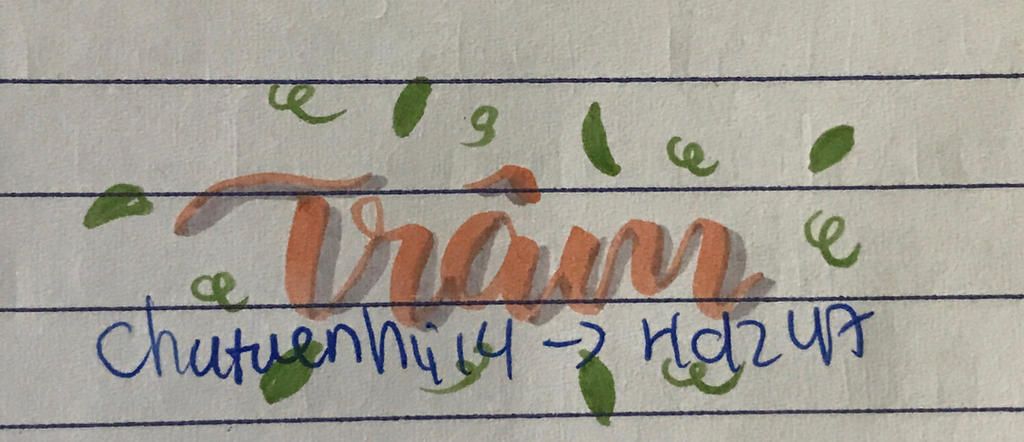 Trâm
Chutuenhi4i4 → Hd24A